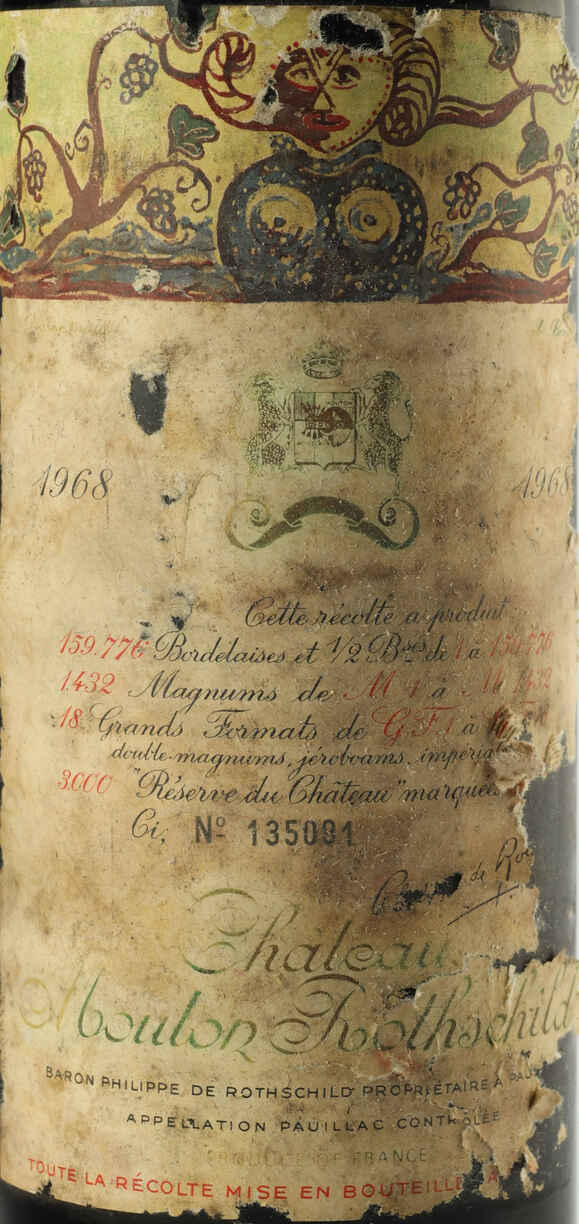 1968 1968
Cette récolte a produit
159.776 Bordelaises et 1/2 Bses de 1 à 159.776
1.432 Magnums de M 1 à M 1.432
18 Grands Formats de G.F.1 à
double-magnums, jéroboams, impérial
3.000 "Réserve du Château" marquées
Ci, Nº 135091
de Ro
Château
Mouton Rothschild
BARON PHILIPPE DE ROTHSCHILD PROPRIÉTAIRE A PAU
APPELLATION PAUILLAC CONTRÔLÉE
PRODUCE OF FRANCE
TOUTE LA RÉCOLTE MISE EN BOUTEILLE A